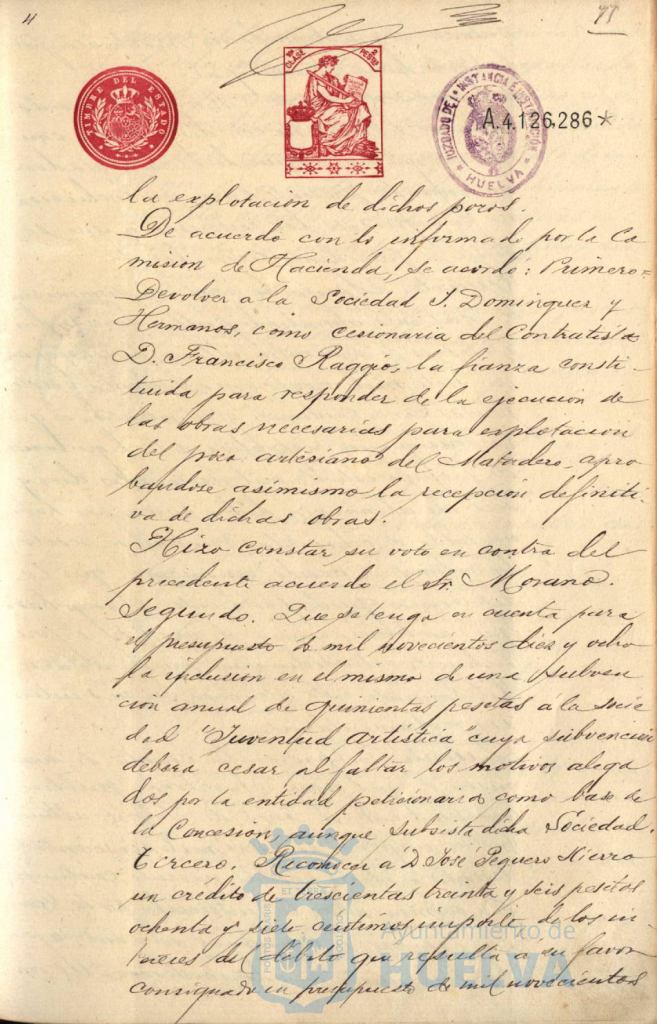 4
77
TIMBRE DEL ESTADO
CLASE
2 PESETAS
JUZGADO DE 1ª INSTANCIA E INSTRUCCIÓN
HUELVA
A.4.126,286*
la explotacion de dichos pozos.
De acuerdo con lo informado por la Co
mision de Hacienda, se acordó: Primero=
Devolver á la Sociedad J. Dominguez y
Hermanos, como cesionaria del Contratista
D. Francisco Raggio, la fianza consti-
tuida para responder de la ejecucion de
las obras necesarias para explotacion
del pozo artesiano del Matadero, apro
bandose asimismo la recepcion definiti-
va de dichas obras.
Hizo constar su voto en contra del
precedente acuerdo el Sr. Morano.
Segundo. Que se tenga en cuenta para
el presupuesto de mil novecientos diez y ocho
la inclusion en el mismo de una subven
cion anual de quinientas pesetas á la socie
dad "Juventud Artistica" cuya subvencion
debera cesar al faltar los motivos alega
dos por la entidad peticionaria como base de
la Concesion, aunque subsista dicha Sociedad.
Tercero. Reconocer á D José Peguero Hierro
un crédito de trescientas treinta y seis pesetas
ochenta y siete centimos importe de los in
tereses del débito que resulta a su favor
consignado en presupuesto de mil novecientos
Ayuntamiento de
HUELVA